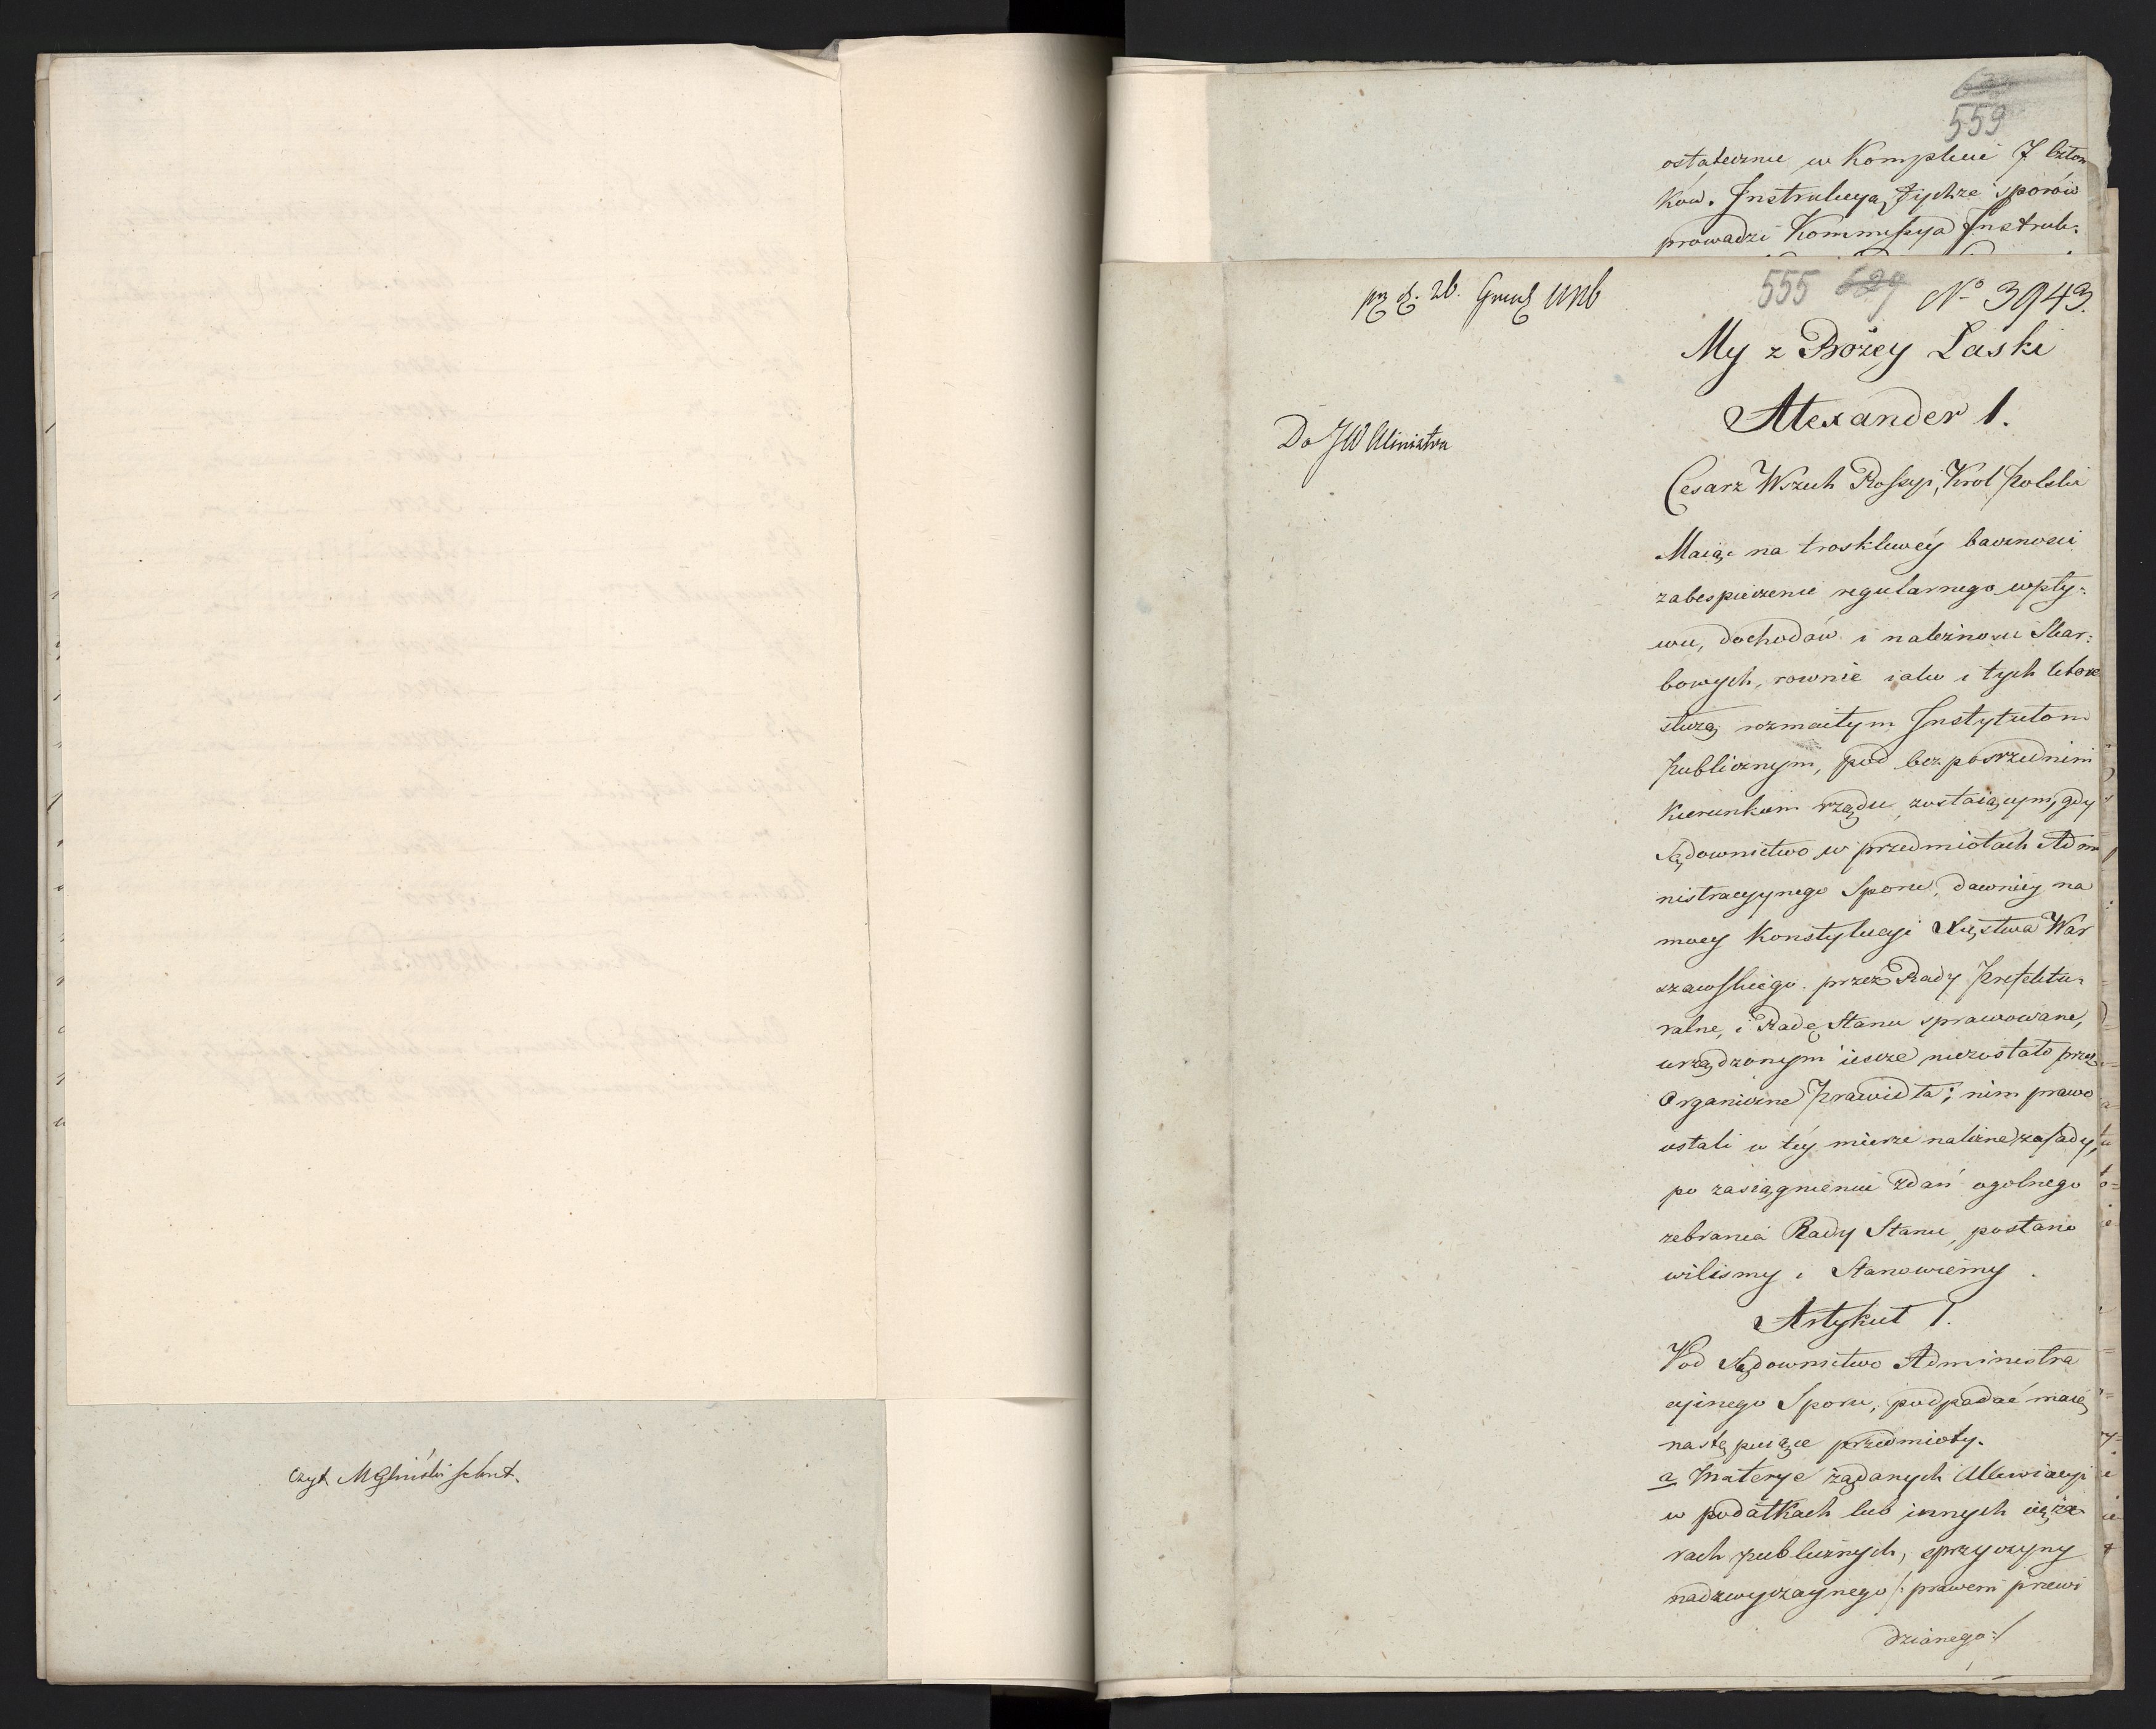 Czyt. MGliński sekret.
559
ostatecznie w Komplecie 7 Człon
ków. Instrukcyą tychże sporów
prowadzi Kommissya Instruk:
555 629 No 3943.
My z Bożey Łaski
Alexander 1.
Do JW Ministra
Cesarz Wszech Rossyi, Król Polski
Maiąc na troskliwéy baczności
zabespieczenie regularnego wpły:
wu, dochodów i należności Skar:
bowych, rownie iako i tych które
służą rozmaitym Instytutom
Publicznym, pod bezpośrzednim
Kierunkiem rządu zostaiącym, gdy
Sądownictwo w przedmiotach Admi
nistracyynego Sporu, dawniey na
mocy Konstytucyi Xięstwa War
szawskiego przez Rady Prefektu:
ralne, i Radę Stanu sprawowane,
urządzonym ieszcze niezostało przez
Organiczne Prawidła; nim prawo
ustali w téy mierze należne zasady,
po zasiągnieniu zdań ogolnego
zebrania Rady Stanu, postano
wilismy i Stanowiemy.
Artykuł 1.
Pod Sądownictwo Administra
cyinego Sporu, podpadać maią
następuiące przedmioty.
a Materye żądanych Allewiacyi
w podatkach lub innych cięża
rach publicznych, z przyczyny
nadzwyczaynego /: prawem przewi
dzianego :/